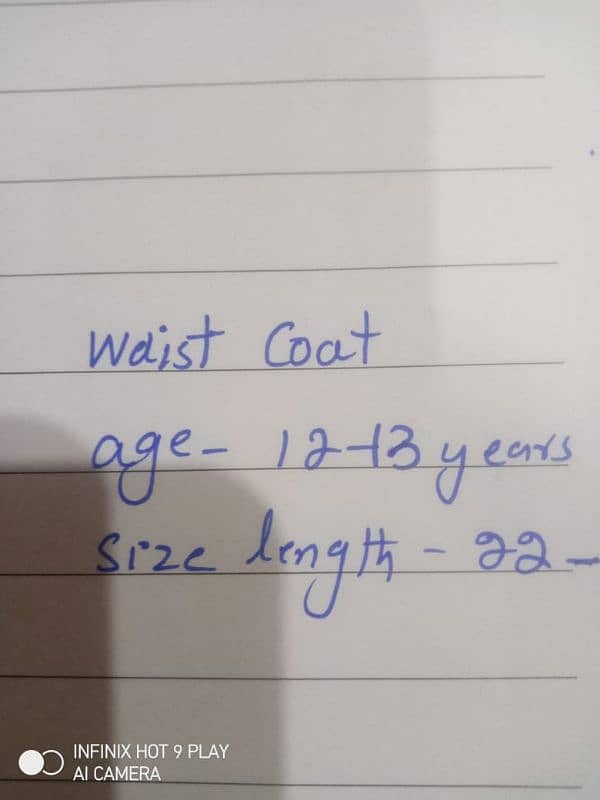 Waist Coat
age- 12-13 years
Size length - 22-
INFINIX HOT 9 PLAY
AI CAMERA